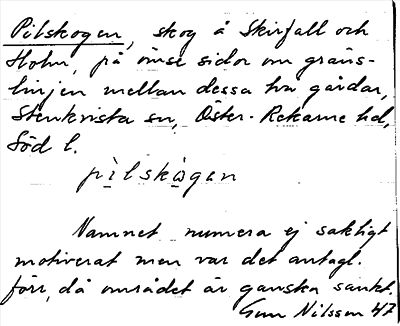 Pilskogen, skog å Skirfall och
Holm, på ömse sidor om gräns-
linjen mellan dessa två gårdar,
Stenkvista sn, Öster-Rekarne hd,
Söd l.
pìlskὼgen
Namnet numera ej sakligt
motiverat men var det antagl.
förr, då området är ganska sankt.
Gun Nilsson 47